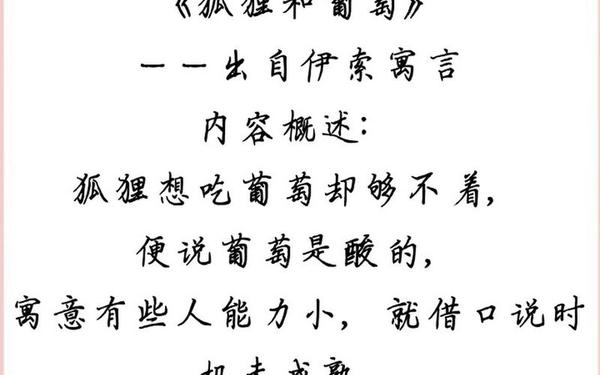 《狐狸和葡萄》
——出自伊索寓言
内容概述：
狐狸想吃葡萄却够不着，
便说葡萄是酸的，
寓意有些人能力小，就借口说时
机未成熟